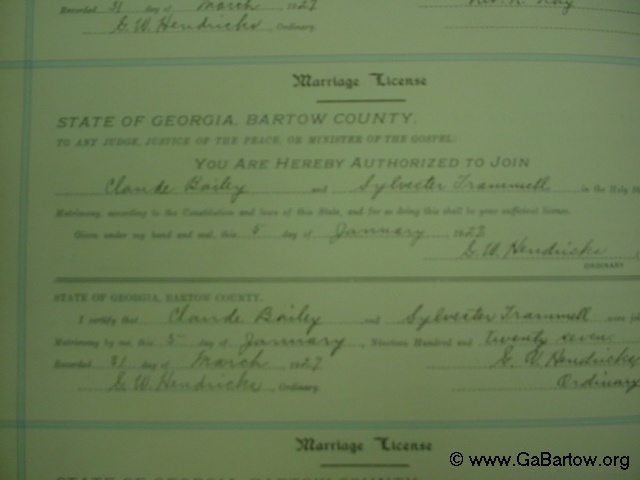 Recorded 31 day of March 1927 Rev. R. Ray
G. W. Hendricks Ordinary.
Marriage License
STATE OF GEORGIA, BARTOW COUNTY.
TO ANY JUDGE, JUSTICE OF THE PEACE, OR MINISTER OF THE GOSPEL:
YOU ARE HEREBY AUTHORIZED TO JOIN
Claude Bailey and Sylvester Trammell in the Holy
Matrimony, according to the Constitution and laws of this State, and for so doing this shall be your sufficient license.
Given under my hand and seal, this 5 day of January 1927
G. W. Hendricks
ORDINARY
STATE OF GEORGIA, BARTOW COUNTY.
I certify that Claude Bailey and Sylvester Trammell were
Matrimony by me, this 5 day of January, Nineteen Hundred and twenty seven.
Recorded 31 day of March 1927 G. W. Hendricks
G. W. Hendricks Ordinary. Ordinary
Marriage License
STATE OF GEORGIA, BARTOW COUNTY.
© www.GaBartow.org